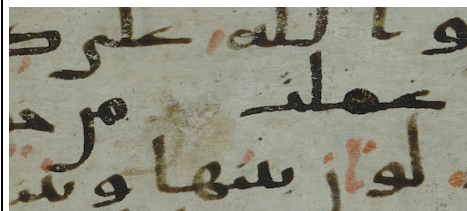 والله على ك
عملت من خ
لو ان بينها وبين